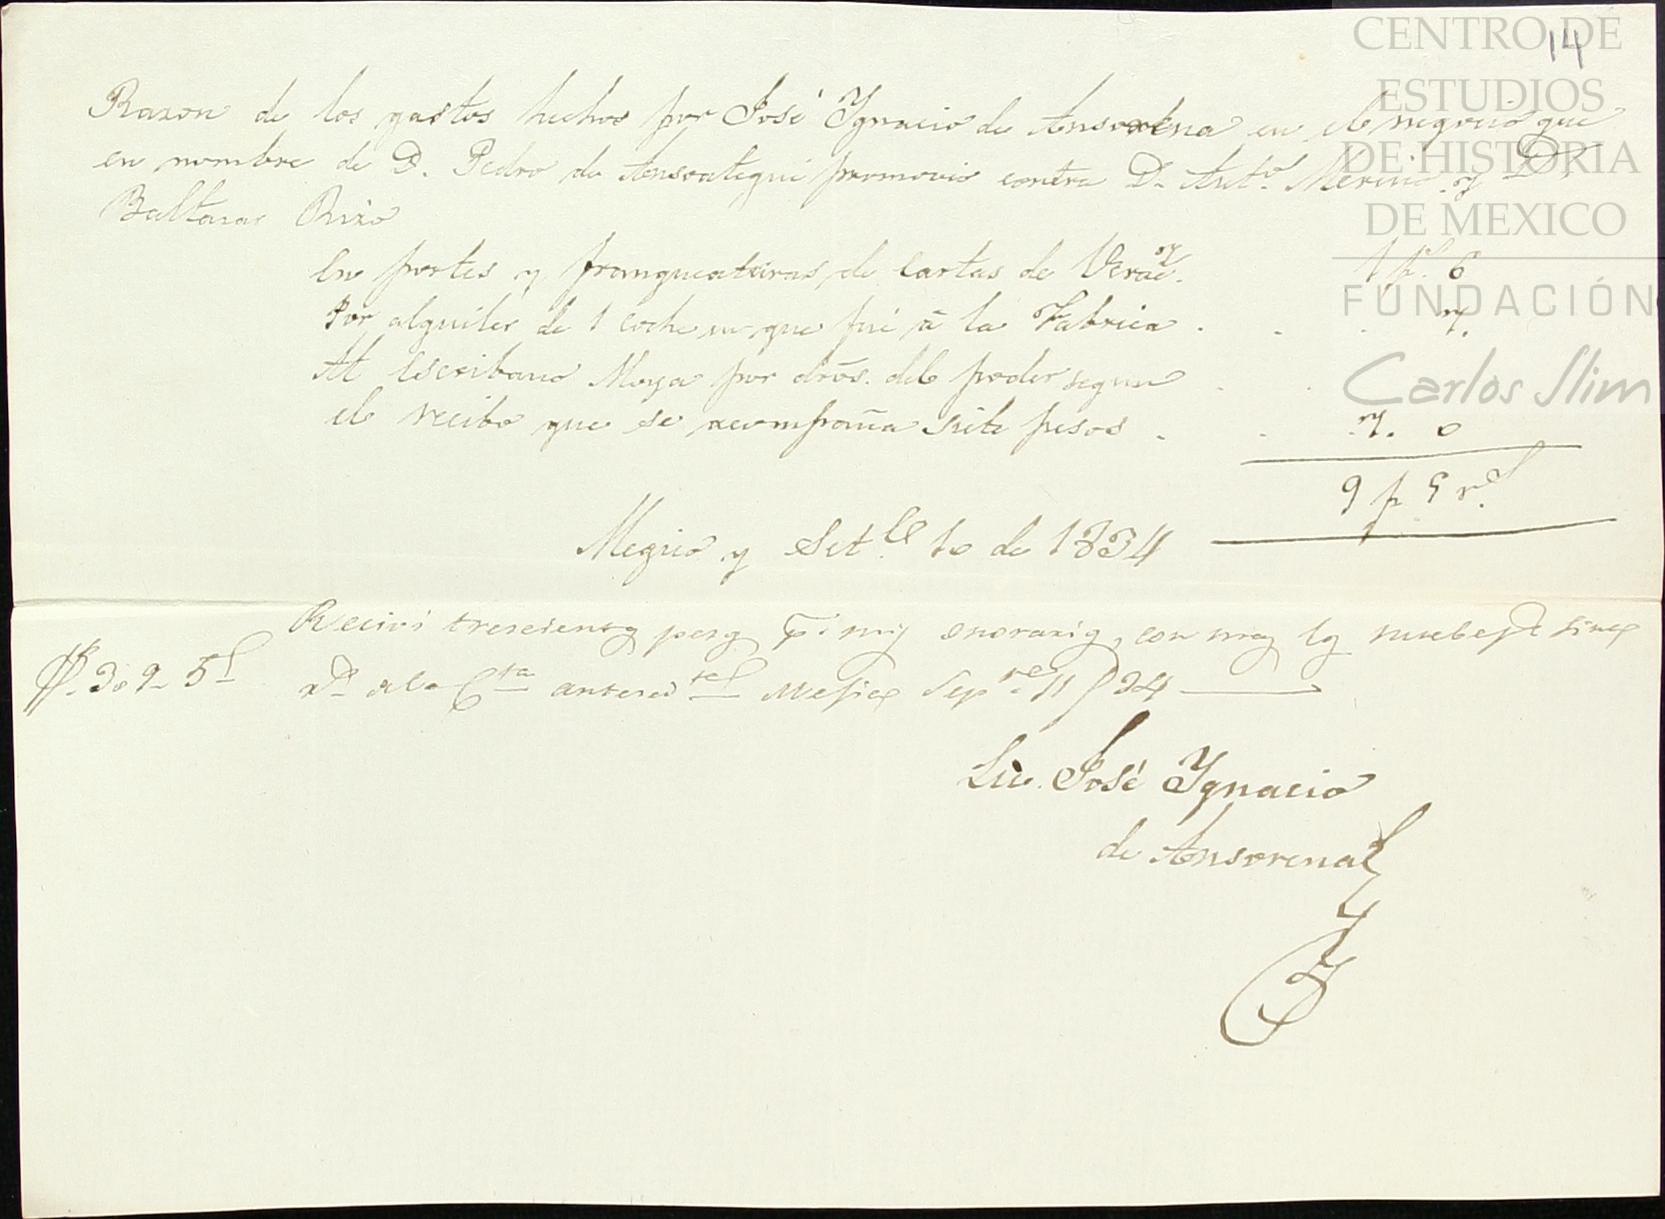 14
CENTRO DE
ESTUDIOS
DE HISTORIA
DE MEXICO
FUNDACIÓN
Carlos Slim
Razon de los gastos hechos por José Ygnacio de Ansorena en el negocio que
en nombre de D. Pedro de Ansoategui promovio contra D. Anto. Merino y D.
Baltasar Rizo
En portes y franqueaturas de cartas de Veraz. 1 ps. 6
Por alquiler de 1 coche en que fué á la Fabrica . . . 7.
Al Escribano Moya por dros. del poder segun . .
el recibo que se acompaña siete pesos . . 7. 0
9 p 5 rs.
Megico y Setbe. 10 de 1834
Recivi trescientos pesos pr. mis onorarios, con mas los nuebe ps. sinco
$. 309. 5 rs. de la Cta anterior Mexico Sepre. 11 / 34
Lic. José Ygnacio
de Ansorena